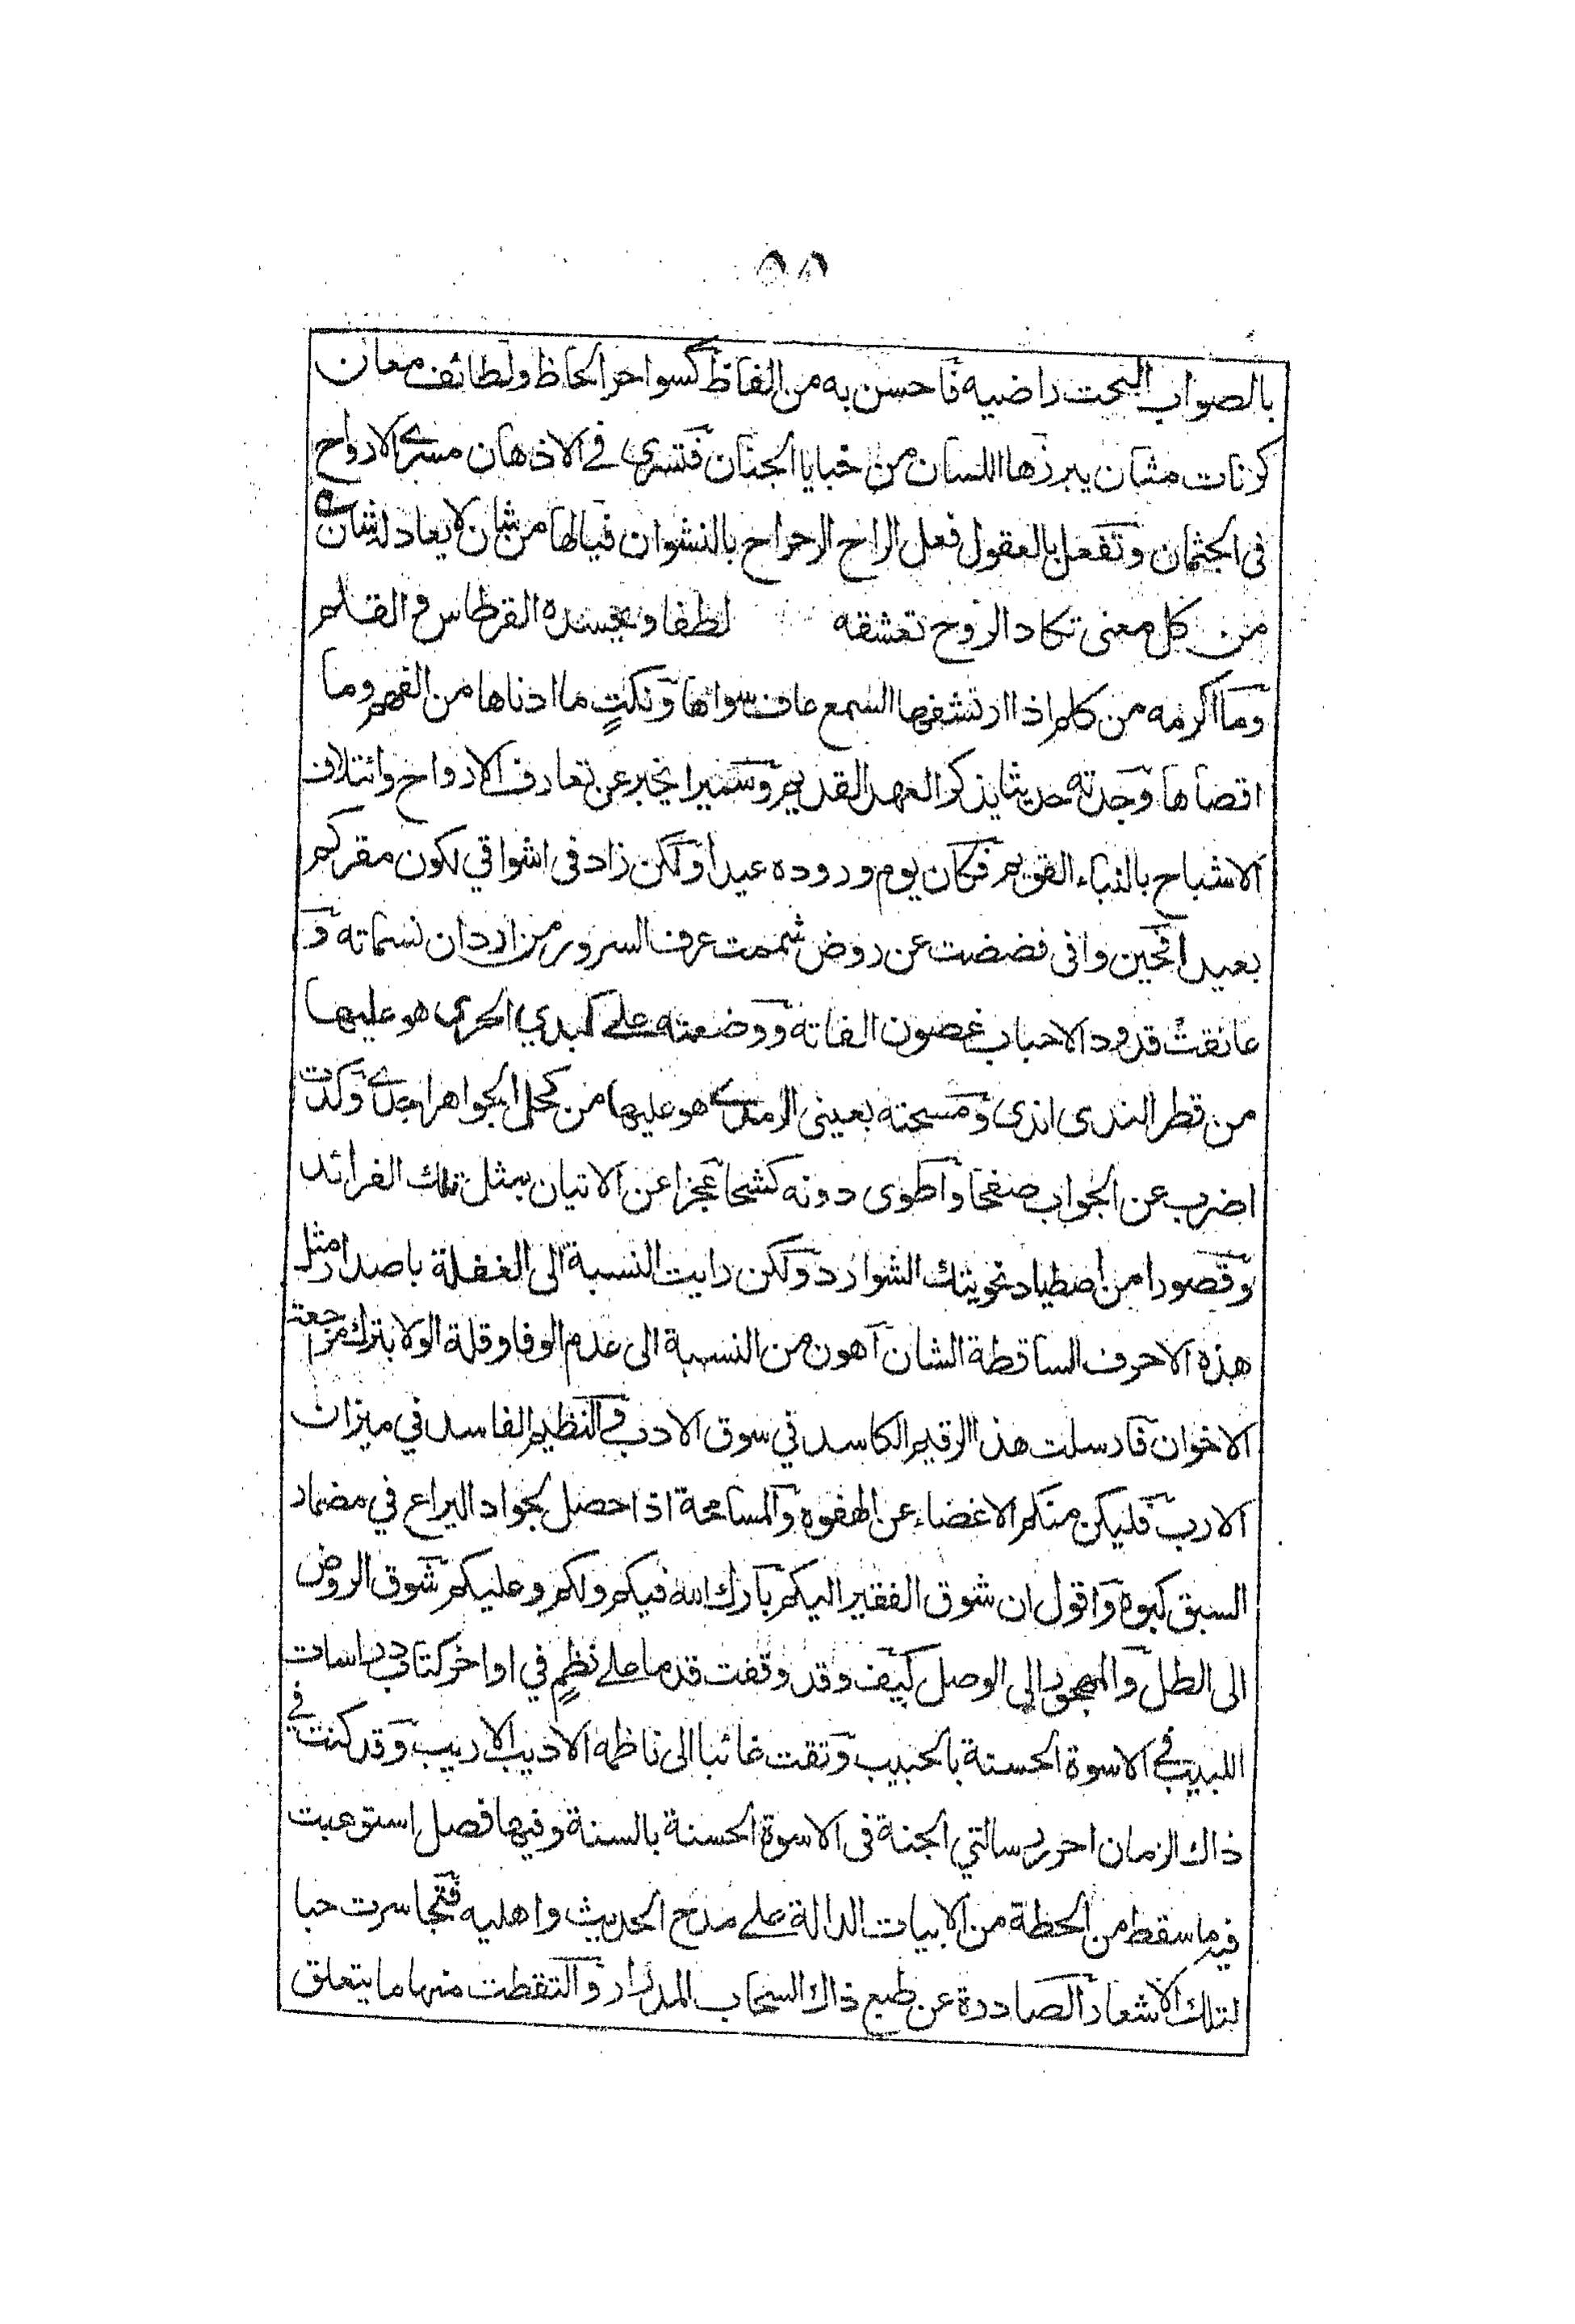 ٥٨
بالصواب البحت راضيه فاحسن به من الفاظ كسواحر الحاظ ولطائف معان
كرنات مثان يبرزها اللسان من خبايا الجنان فتسرى في الاذهان مسرى الارواح
فى الجثمان وتفعل بالعقول فعل الراح الرحراح بالنشوان فيالها من شان لا يعادله شان
من كل معنى تكاد الروح تعشقه لطفا ويحسده القرطاس والقلم
وما اكرمه من كلم اذا ارتشفها السمع عاف سواها ونكتٍ ما ادناها من الفهم وما
اقصاها وجدته حديثا يذكر العهد القديم وسميرا يخبر عن تعارف الارواح وائتلاف
الاشباح بالنباء القويم فكان يوم وروده عيدا ولكن زاد فى اشواقي لكون مقركم
بعيدا فحين وافى فضضت عن روض شممت عرف السرور من اردان نسماته و
عانقت قدود الاحباب غصون الفاته ووضعته على كبدي الحرى هو عليها
من قطر الندى اندى ومسحته بعينى الرمدى هو عليها من كحل الجواهر اجدى وكدت
اضرب عن الجواب صفحا واطوى دونه كشحا عجزا عن الاتيان بمثل تلك الفرائد
وقصورا من اصطياد نحو يتك الشوارد ولكن رايت النسبة الى الغفلة باصدار مثل
هذه الاحرف الساقطة الشان اهون من النسبة الى عدم الوفا وقلة الولا بترك مراجعة
الاخوان فارسلت هذا الرقيم الكاسد في سوق الادب في النظيم الفاسد في ميزان
الارب فليكن منكم الاغضاء عن الهفوه والمسامحة اذا حصل لجواد اليراع في مضمار
السبق كبوه واقول ان شوق الفقير اليكم بارك الله فيكم ولكم وعليكم شوق الروض
الى الطل والمهجور الى الوصل كيف وقد وقفت قدما على نظمٍ في اواخر كتابي دراسات
اللبيب في الاسوة الحسنة بالحبيب وتقت غائبا الى ناظمه الاديب الاريب وقد كنت في
ذاك الزمان احرر رسالتي الجنة فى الاسوة الحسنة بالسنة وفيها فصل استوعبت
فيه ما سقط من الحظة من الابيات الدالة على مدح الحديث واهليه فتجاسرت حبا
لتلك الاشعار الصادرة عن طبع ذاك السحاب المدرار والتقطت منها ما يتعلق